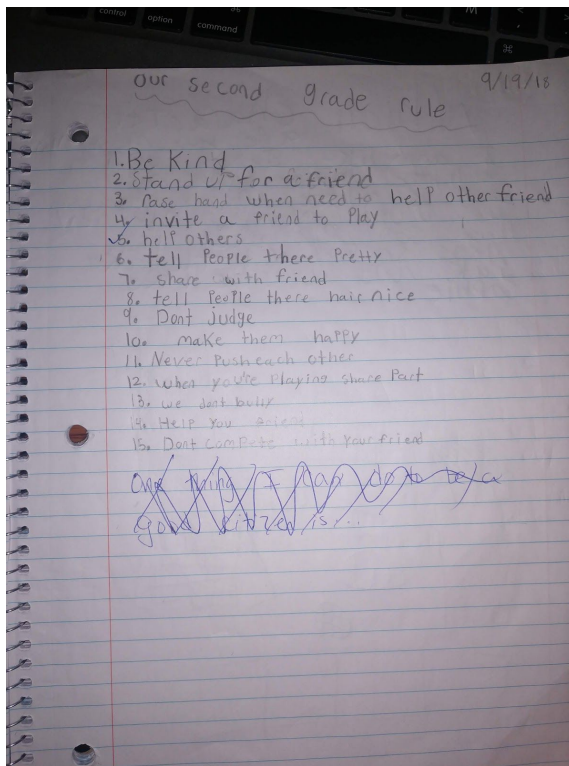 control
option
command
⌘
M
<
⌘
our second grade rule
9/19/18
1. Be Kind
2. Stand up for a friend
3. rase hand when need to help other friend
4. invite a friend to Play
5. help others
6. tell People there Pretty
7. share with friend
8. tell People there hair nice
9. Dont judge
10. make them happy
11. Never Push each other
12. when you're Playing share Part
13. we dont bully
14. Help you friend
15. Dont Compete with your friend
One thing I can do to be a
good citzen is...